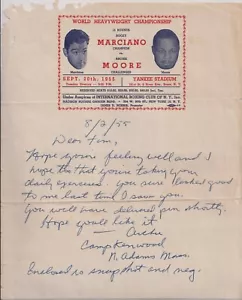 WORLD HEAVYWEIGHT CHAMPIONSHIP
15 ROUNDS
ROCKY
MARCIANO
CHAMPION
vs ARCHIE
MOORE
CHALLENGER
Marciano
Moore
SEPT. 20th, 1955
YANKEE STADIUM
INTERNATIONAL BOXING CLUB OF N.Y., Inc.
8/2/55
Dear Tom,
Hope youre feeling well and I
hope that youre taking your
daily exercises. you sure looked good
to me last time I saw you.
You will have deluxed pin shortly.
Hope you'll like it.
— Archie
Camp Kenwood
N. Adams Mass.
Enclosed is snapshot and neg.